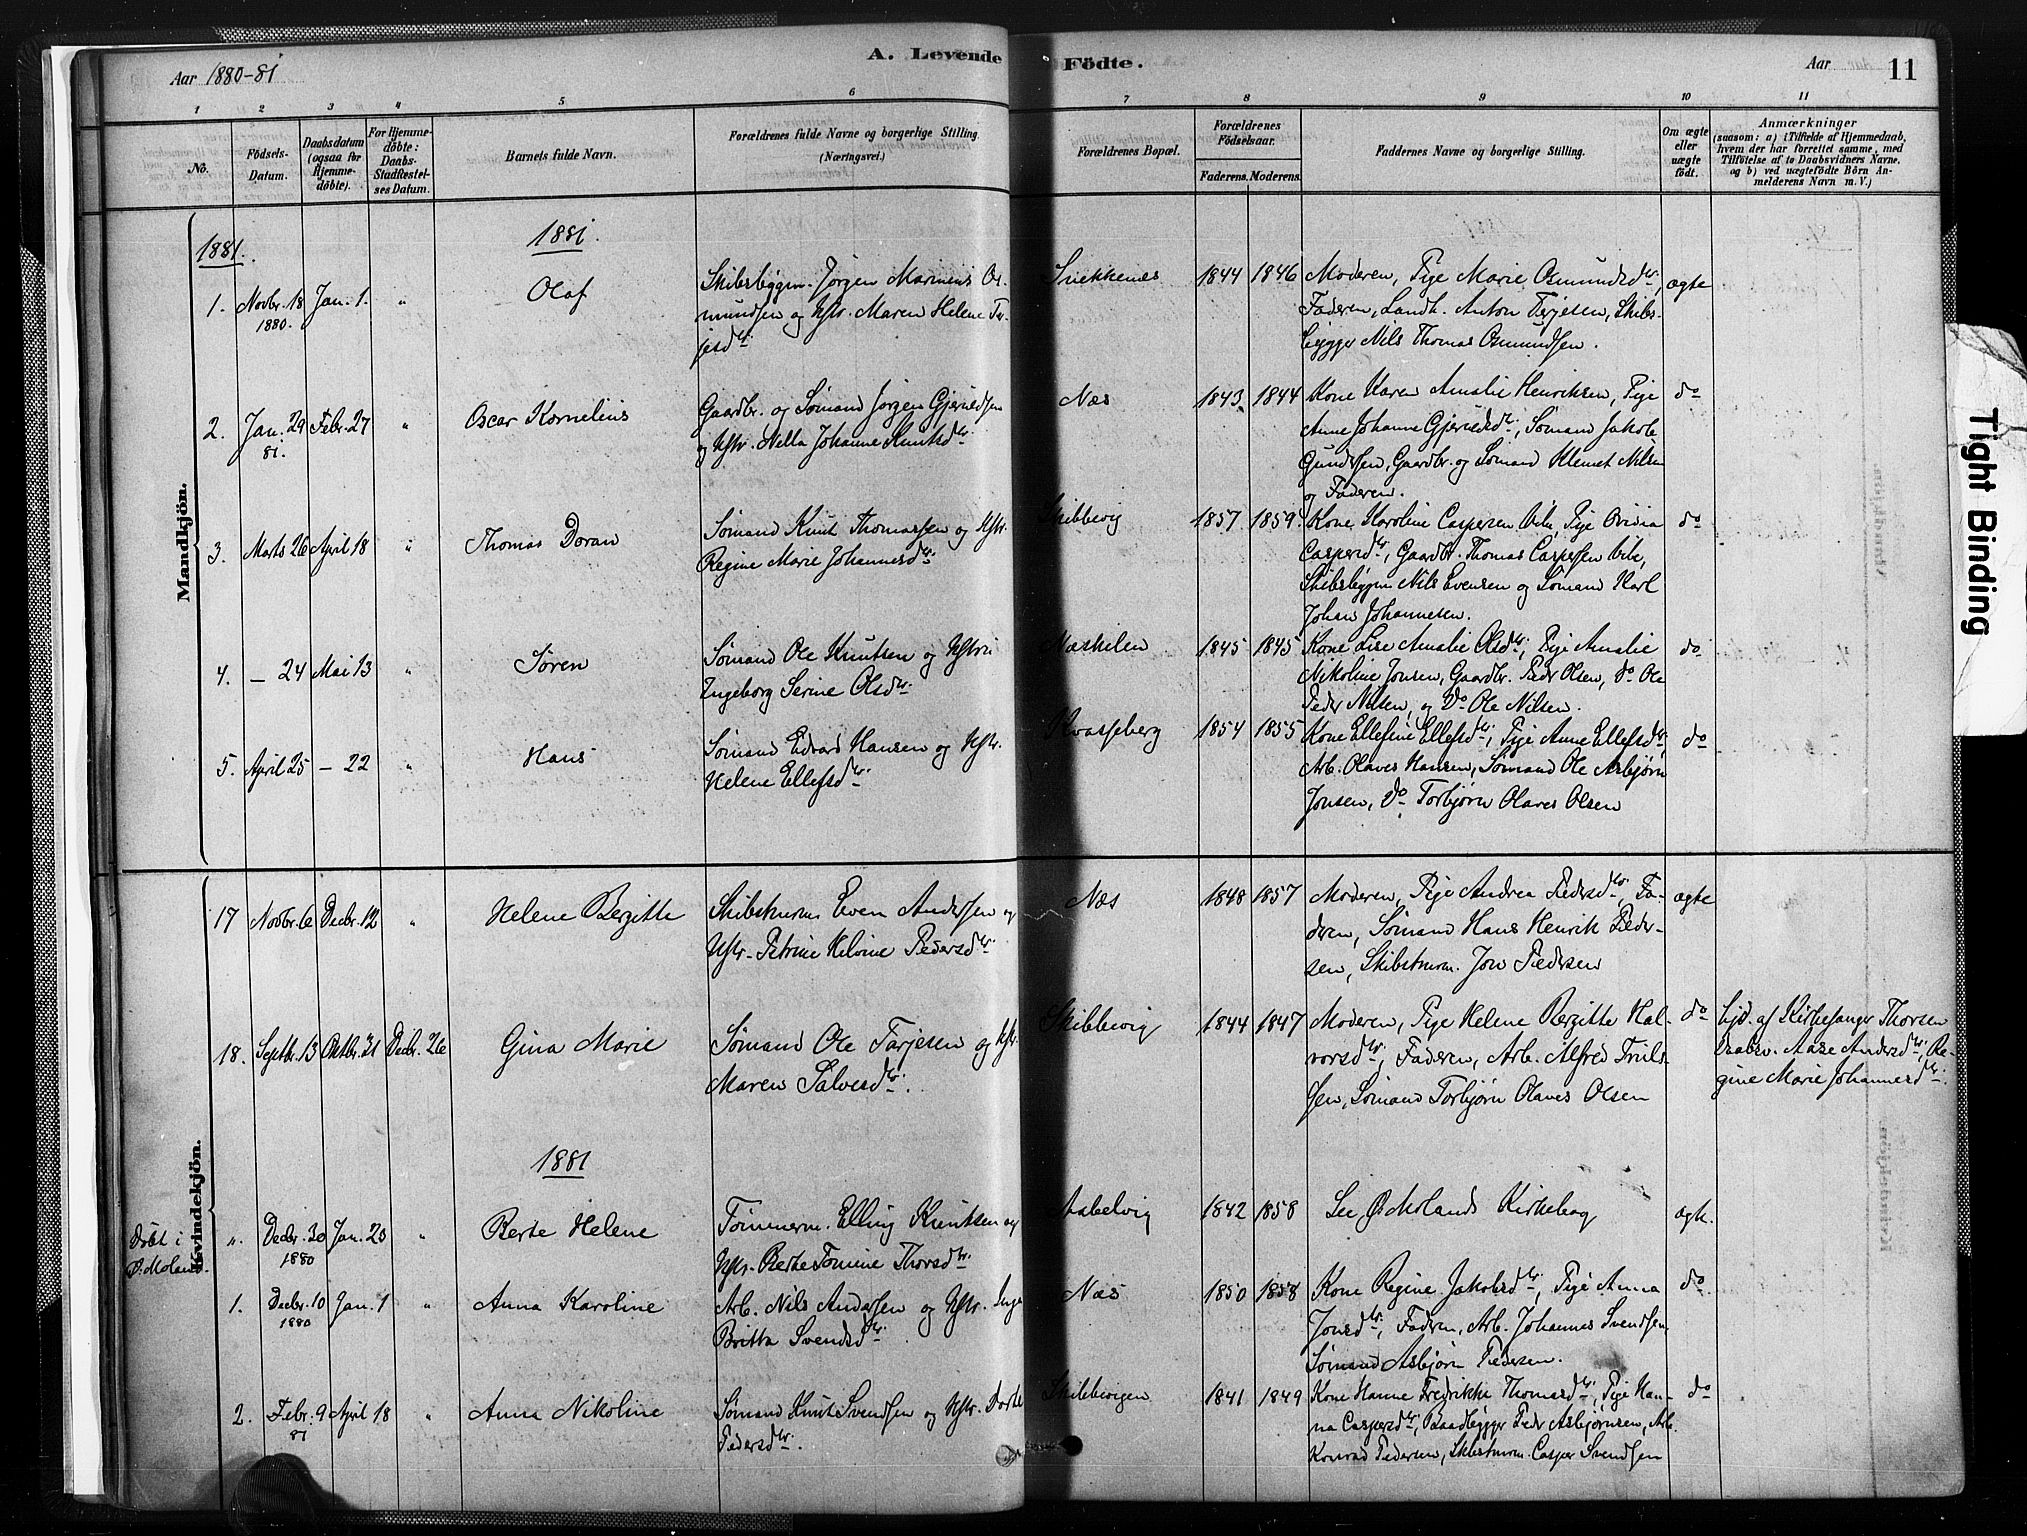 Aar 1880-81
A. Levende Födte.
Aar
11
1 2 3 4 5 6 7 8 9 10 11
No.
Födsels-
Datum.
Daabsdatum
(ogsaa for
Hjemme-
döbte).
For Hjemme-
döbte:
Daabs-
Stadfæstel-
ses Datum.
Barnets fulde Navn.
Forældrenes fulde Navne og borgerlige Stilling.
(Næringsvei.)
Forældrenes Bopæl.
Forældrenes
Födselsaar.
Faderens. Moderens.
Faddernes Navne og borgerlige Stilling.
Om ægte
eller
uægte
födt.
Anmærkninger
(saasom: a) i Tilfælde af Hjemmedaab,
hvem der har forrettet samme, med
Tilföielse af to Daabsvidners Navne.
og b) ved uægtefödte Börn An-
melderens Navn m. V.)
Mandkjön.
1881.
1881.
1. Novbr. 18 Jan. 1. " Olaf
1880.
Skibsbyggm. Jörgen Marinius Os-
mundsen og Hstr. Maren Helene Ter-
jesdtr.
Snekkenes 1844 1846
Moderen, Pige Marie Osmundsdtr,
Faderen, Landh. Anton Terjesen, Skibs-
bygger Nils Thomas Osmundsen.
ægte
2. Jan. 29 Febr. 27 " Oscar Kornelius
81.
Gaardbr. og Sømand Jørgen Gjeruldsen
og Hstr. Nella Johanne Knutsdtr.
Næs 1843. 1844
Kone Karen Amalie Henriksen, Pige
Anne Johanne Gjeruldsdtr, Sømand Jakob
Gundersen, Gaardbr. og Sømand Klemet Nilsen
og Faderen.
do
3. Marts 26 April 18 " Thomas Doran
Sømand Knut Thomassen og Hstr.
Regine Marie Johannesdtr.
Skibbevig 1857. 1859.
Kone Karoline Caspersen Vik, Pige
Caspersdtr, Gaardbr. Thomas Caspersen Vik,
Skibsbyggm Nils Evensen og Sømand Karl
Johan Johannesen.
do
4. – 24 Mai 13 " Søren
Sømand Ole Knutsen og Hstru
Ingeborg Serine Olsdtr.
Næskilen 1845 1845
Kone Lise Amalie Olsdtr, Pige Amalie
Nikoline Jonsen, Gaardbr. Peder Olsen, do Ole
Peder Nilsen, og Do Ole Nilsen.
do
5. April 25 – 22 " Hans
Sømand Edvard Hansen og Hstr.
Helene Ellefsdtr.
Kvasseberg 1854 1855
Kone Ellefine Ellefsdtr, Pige Anne Ellefsdtr,
Arb. Olaves Hansen, Sømand Ole Asbjørn
Jonsen, Do Torbjørn Olaves Olsen
do
Kvindekjön.
17 Novbr. 6 Decbr. 12 " Helene Bergitte
Skibstmrm. Even Andersen og
Hstr. Petrine Helvine Pedersdtr.
Næs 1848 1857
Moderen, Pige Andrea Pedersdtr, Fa-
deren, Sømand Hans Henrik Peder-
sen, Skibstmrm. Jon Pedersen
ægte
18. Septbr. 13 Oktbr. 31 Decbr. 26 Gina Marie
Sømand Ole Tarjesen og Hstr.
Maren Salvesdtr.
Skibbevig 1844 1847
Moderen, Pige Helene Bergitte Hal-
vorsdtr, Faderen, Arb. Alfred Truls-
sen, Sømand Torbjørn Olaves Olsen
do
Hjd. af Kirkesanger Thorsen
Daabsv. Aase Andersdtr, Re-
gine Marie Johannesdtr.
1881
Døbt i
Ø. Moland.
". Decbr. 30 Jan. 23 " Berte Helene
1880
Tømmerm. Elling Knutsen og
Hstr. Berte Tomine Thorsdtr.
Aabelvig 1842 1858
See Ø. Molands Kirkebog
ægte.
1. Decbr. 10 Jan. 1 " Anna Karoline
1880
Arb. Nils Andersen og Hstr. Inge
Britta Svendsdtr.
Næs 1850 1858
Kone Regine Jakobsdtr, Pige Anna
Jonsdtr, Faderen, Arb. Johannes Svendsen
Sømand Asbjørn Pedersen.
do
2. Febr. 9 April 18 " Anna Nikoline
81
Sømand Knut Svendsen og Hstr. Dorte
Pedersdtr.
Skibbevigen 1841 1849
Kone Hanne Fredrikke Thomasdtr, Pige Han-
na Caspersdtr, Baadbygger Peder Asbjørnsen, Arb.
Konrad Pedersen, Skibstmrm. Casper Svendsen
do
Tight Binding